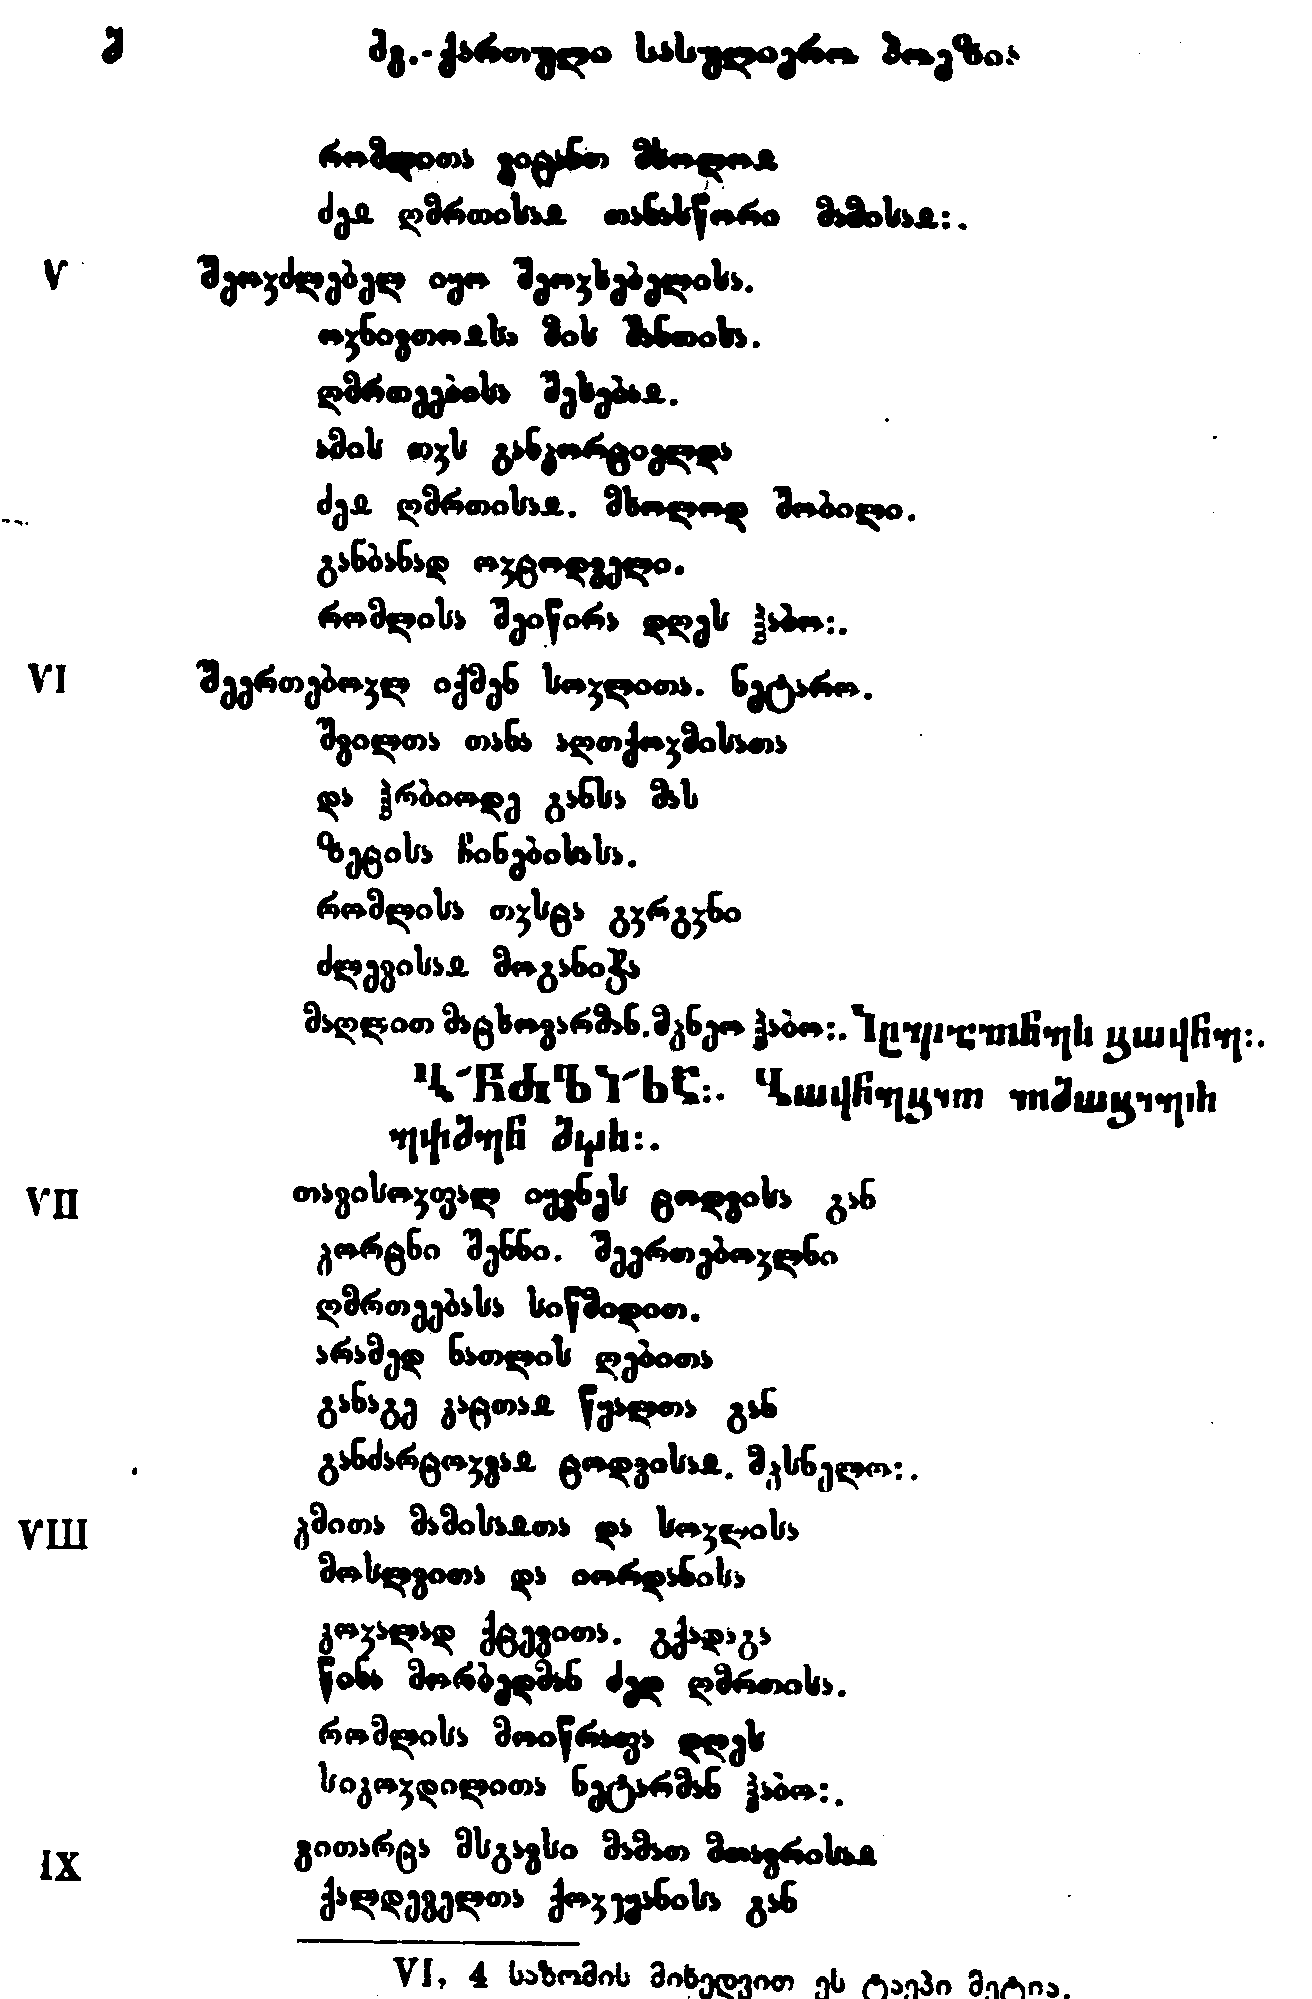 ჟ ძვ.-ქართული სასულიერო პოეზია
რომლითა გიტანთ მხოლოჲ
ძეჲ ღმრთისაჲ თანასწორი მამისაჲ:.
V შეოჳძლებელ იყო შეოჳხებელისა.
ოჳნივთოჲსა მის შანთისა.
ღმრთეებისა შეხებაჲ.
ამის თჳს განჴორციელდა
ძეჲ ღმრთისაჲ. მხოლოდ შობილი.
განბანად ოჳცოდველი.
რომლისა შეიწირა დღეს ჰაბო:.
VI შეერთებოჳლ იქმენ სოჳლითა. ნეტარო.
შვილთა თანა აღთქოჳმისათა
და ჰრბიოდე განსა მას
ზეცისა ჩინებისასა.
რომლისა თჳსცა გჳრგჳნი
ძლევისაჲ მოგანიჭა
მაღლით მაცხოვარმან. მჴნეო ჰაბო:.
VII თავისოჳფალ იყვნეს ცოდვისა გან
ჴორცნი შენნი. შეერთებოჳლნი
ღმრთეებასა სიწმიდით.
არამედ ნათლის ღებითა
განაგე კაცთაჲ წყალთა გან
განძარცოჳვაჲ ცოდვისაჲ. მჴსნელო:.
VIII ჴმითა მამისაჲთა და სოჳლისა
მოსლვითა და იორდანისა
კოჳალად ქცევითა. გქადაგა
წინა მორბედმან ძედ ღმრთისა.
რომლისა მოიწრაფა დღეს
სიკოჳდილითა ნეტარმან ჰაბო:.
IX ვითარცა მსგავსი მამათ მთავრისაჲ
ქალდეველთა ქოჳეყანისა გან
VI, 4 საზომის მიხედვით ეს ტაეპი მეტია.